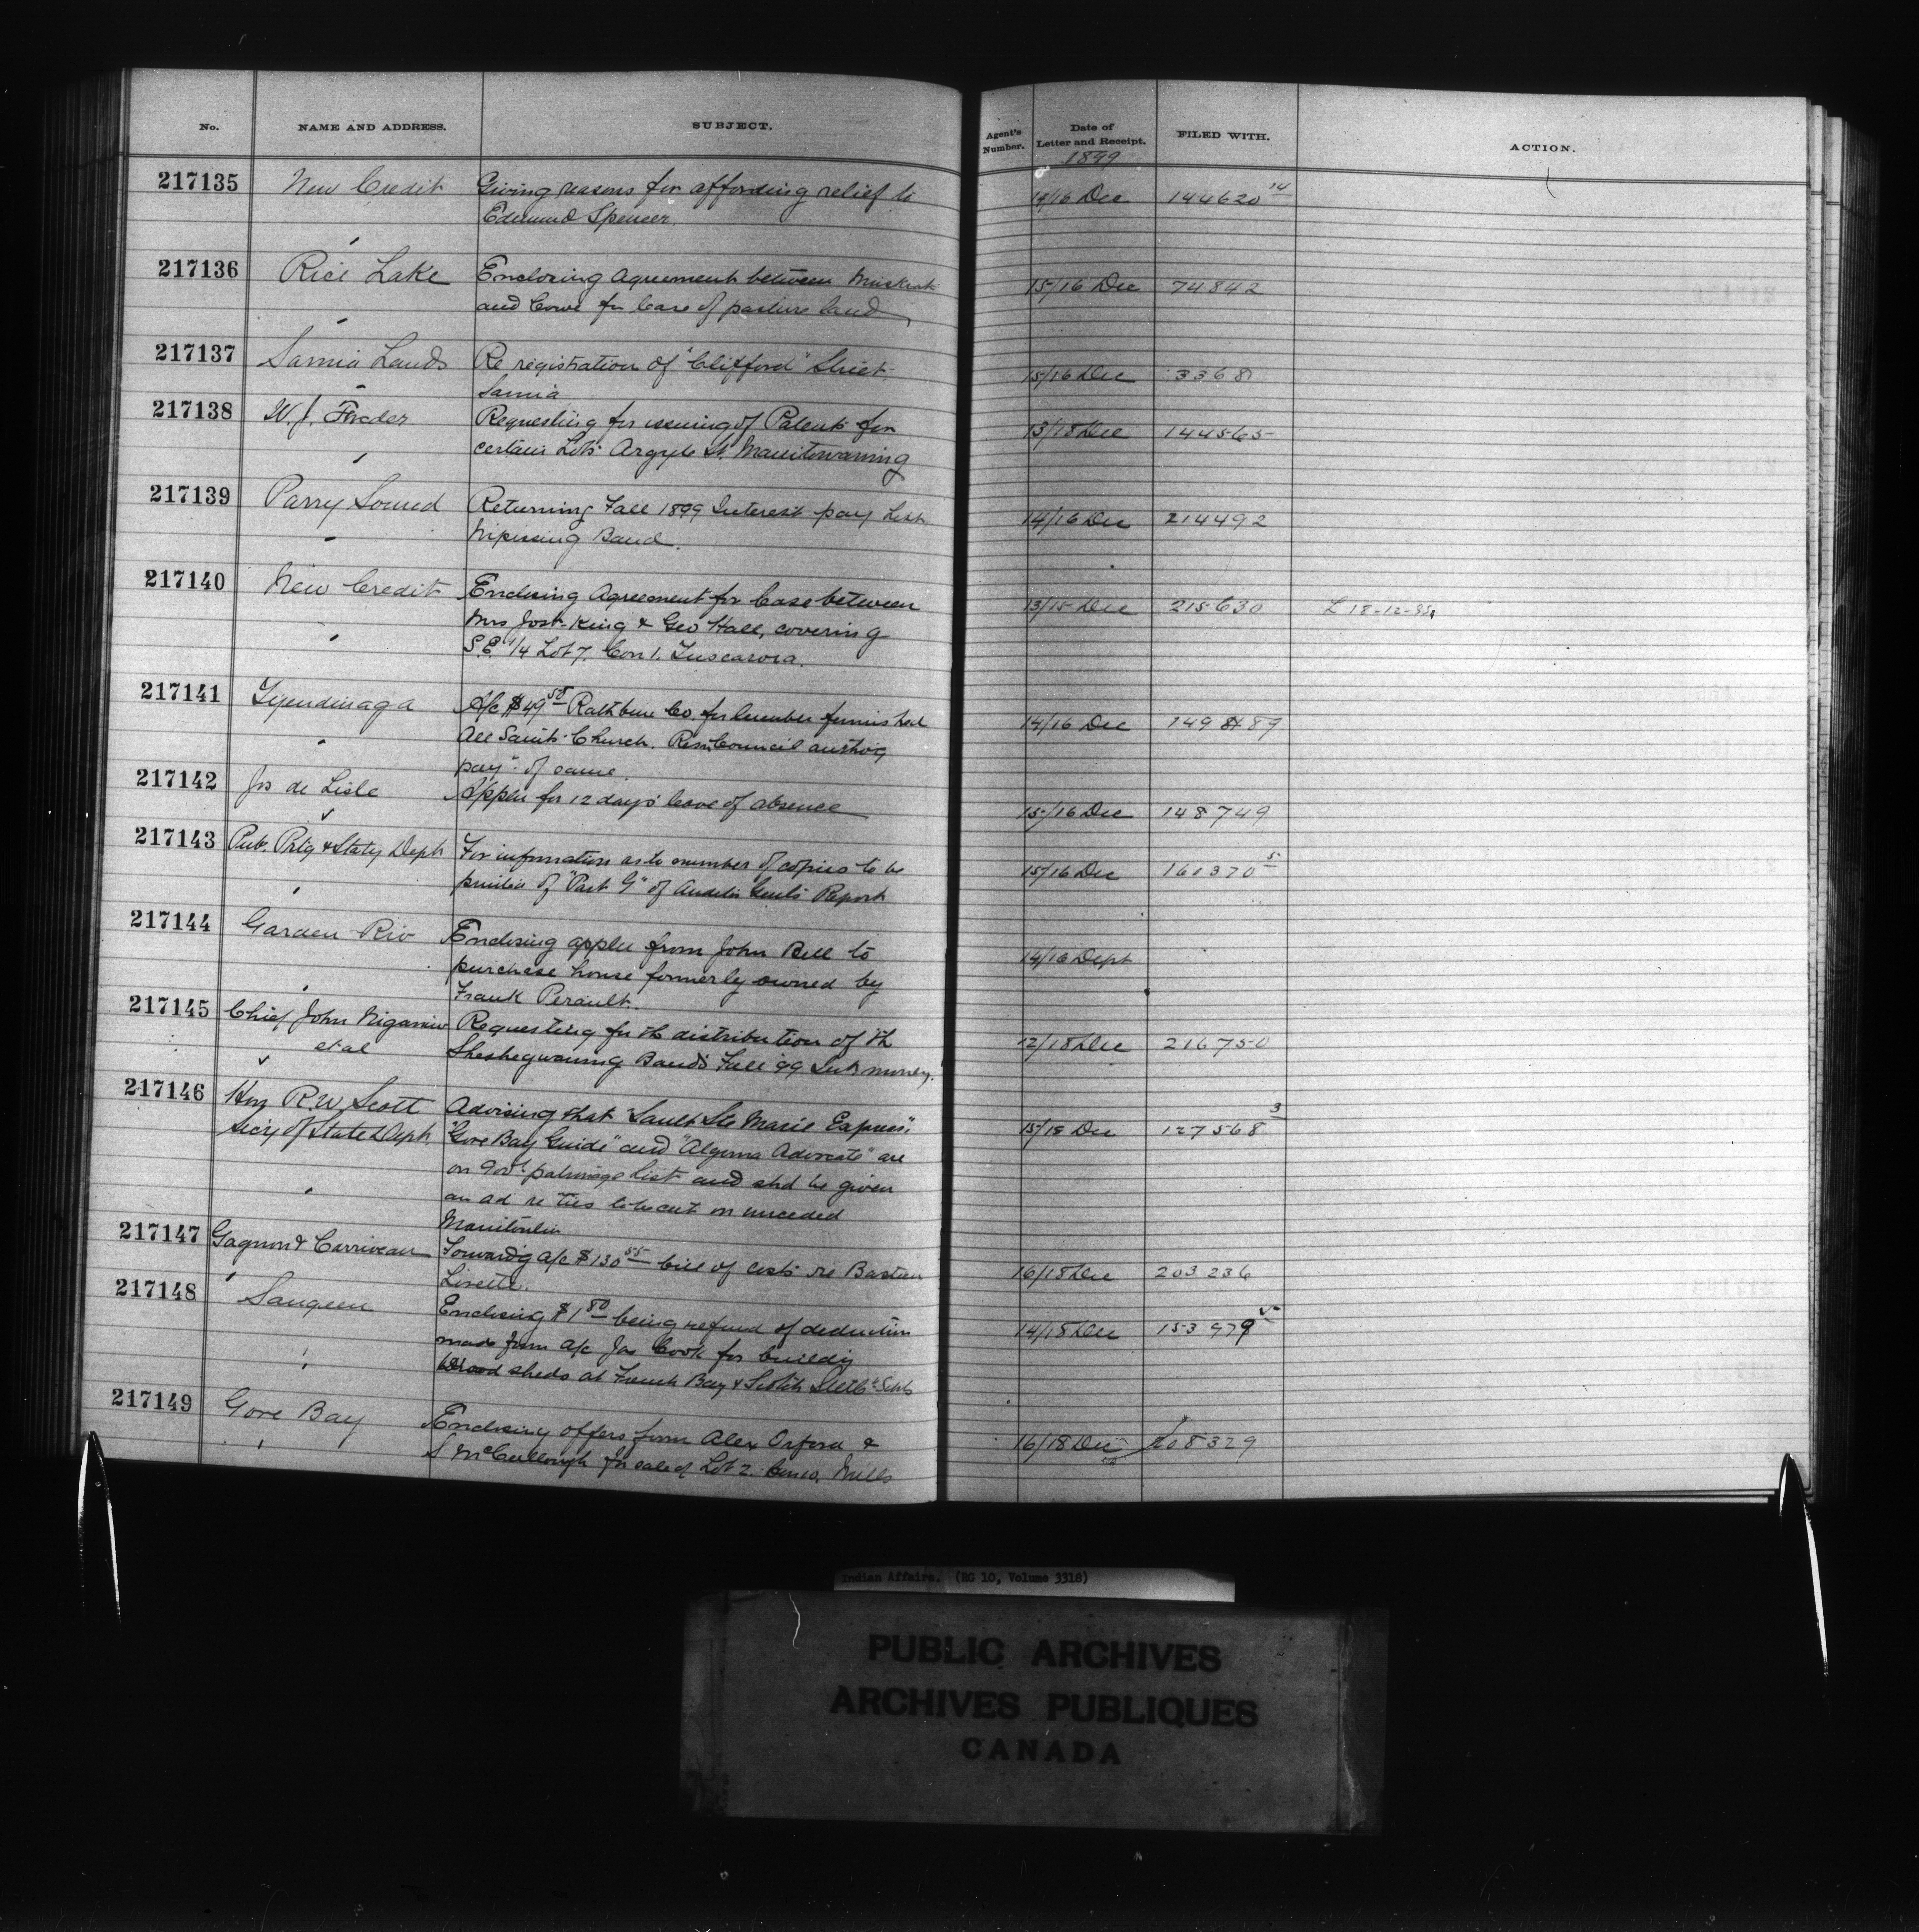 No. NAME AND ADDRESS. SUBJECT. Agent's Number. Date of Letter and Receipt. FILED WITH. ACTION.
1899
217135 New Credit Giving reasons for affording relief to 14/16 Dec 144620 14
Edmund Spencer
217136 Rice Lake Enclosing Agreement between Muskrat 15/16 Dec 74842
and Cowe for lease of pasture land
217137 Sarnia Lands Re registration of "Clifford" Street 15/16 Dec 3368
Sarnia
217138 W. J. Requesting for issuing of Patent for 13/18 Dec 144565
certain Lots Argyle St. Manitowaning
217139 Parry Sound Returning Fall 1899 Interest pay List 14/16 Dec 214492
Nipissing Band.
217140 New Credit Enclosing Agreement for lease between 13/15 Dec 215630 L 18-12-99
Mrs Jost King & Geo Hall, covering
S.E. 1/4 Lot 7. Con 1. Tuscarora.
217141 Tyendinaga A/c $49 50 Rathbun Co. for lumber furnished 14/16 Dec 149489
All Saints Church. Resn Council authog
payt of same.
217142 Jos de Lisle Appln for 12 days leave of absence 15/16 Dec 148749
217143 Pub. Prtg & Staty Dept For information as to number of copies to be 15/16 Dec 161370 5
printed of "Part G" of Auditor Genl's Report
217144 Garden Riv Enclosing appln from John Bell to 14/16 Dept
purchase house formerly owned by
Frank Perault.
217145 Chief John Niganiw Requesting for th distribution of th 12/18 Dec 216750
et al Sheshegwaning Band's Fall 99 Int money.
217146 Hon R. W. Scott Advising that "Sault Ste Marie Express", 15/18 Dec 127568 3
Secy of State Dept. "Gore Bay Guide" and "Algoma Advocate" are
on Govt patronage list and shd be given
an ad re ties to be cut on unceded
Manitoulin
217147 Gagnon & Carriveau Forwardg a/c $130 55 bill of costs re Bastien 16/18 Dec 203236
217148 Saugeen Enclosing $1 80 being refund of deduction 14/18 Dec 153979 5
made from a/c Jas Cook for buildig
wood sheds at French Bay & Scotch Settlt Schls
217149 Gore Bay Enclosing offers from Alex Orford & 16/18 Dec 208329
S McCullough for sale of Lot 2. Con 10. Mills
Indian Affairs. (RG 10, Volume 3318)
PUBLIC ARCHIVES
ARCHIVES PUBLIQUES
CANADA